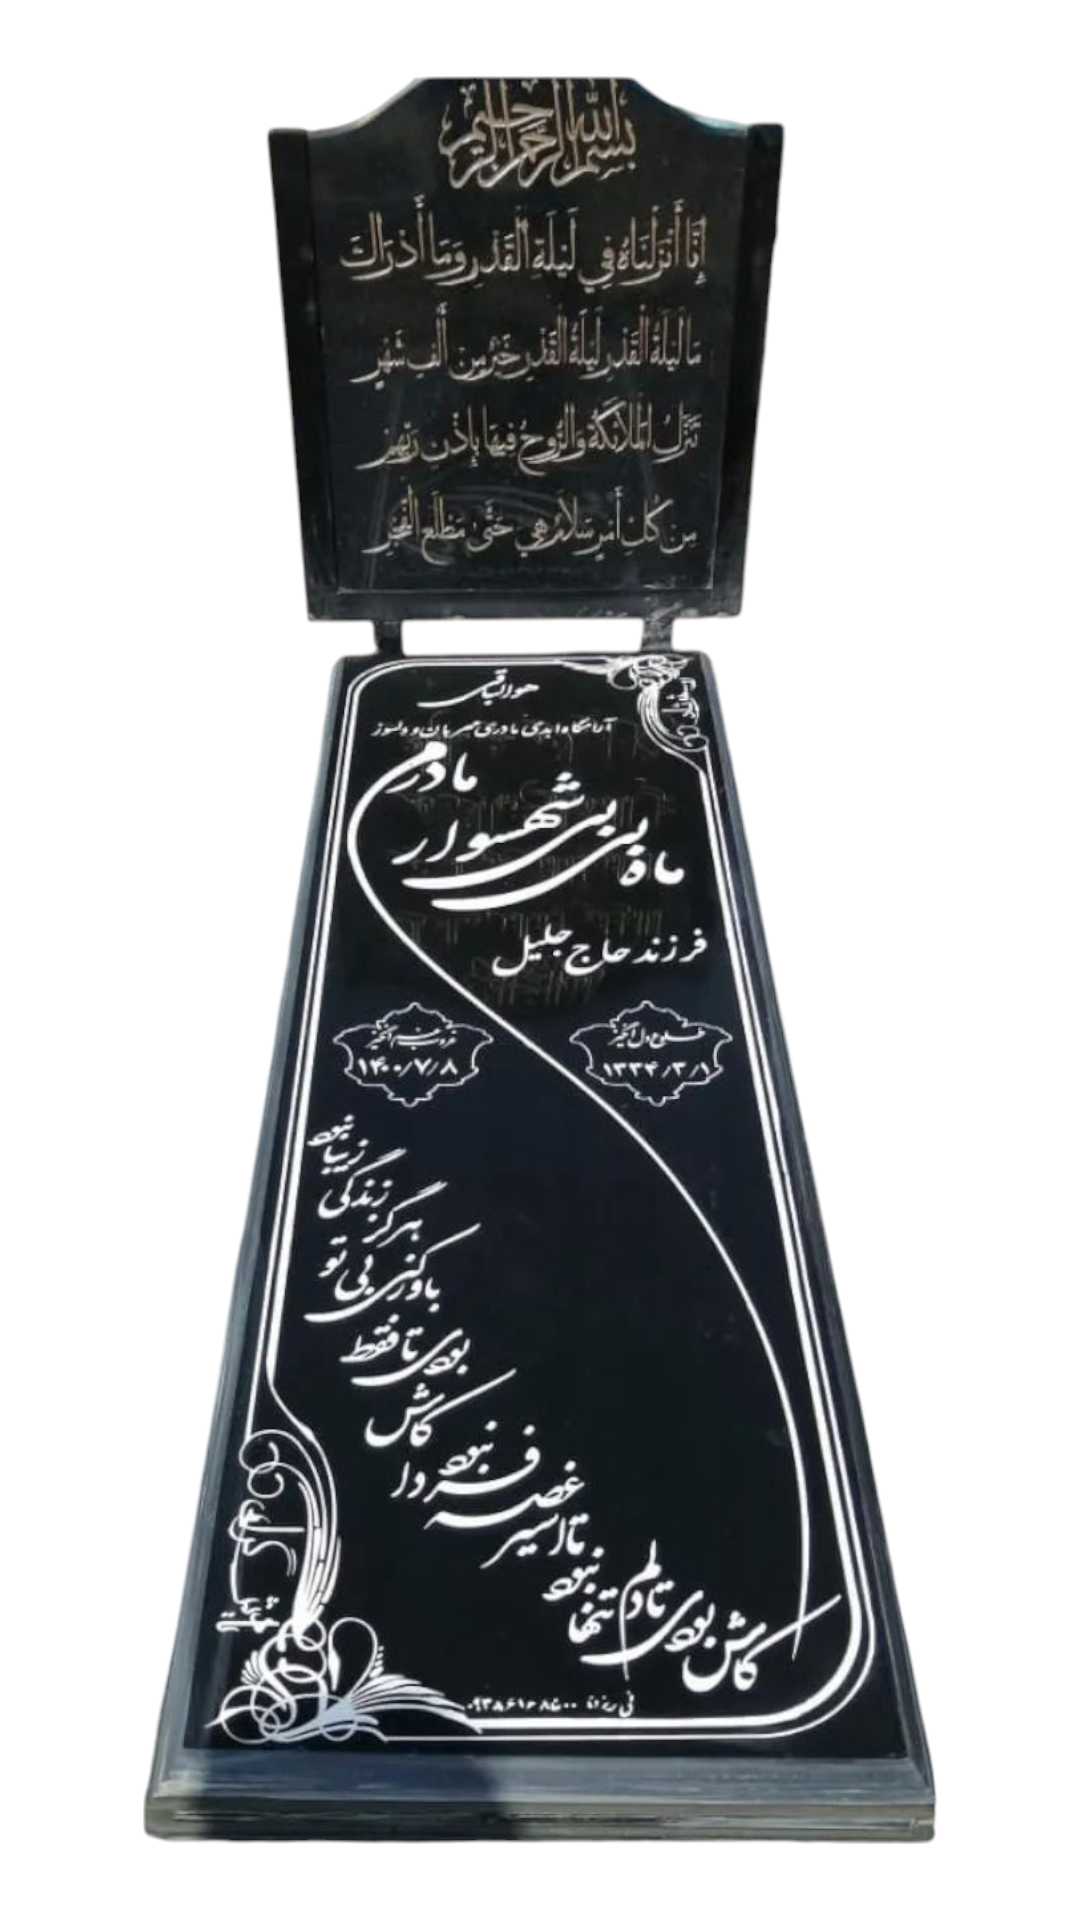 بسم الله الرحمن الرحیم
إِنَّا أَنْزَلْنَاهُ فِي لَيْلَةِ الْقَدْرِ وَمَا أَدْرَاكَ
مَا لَيْلَةُ الْقَدْرِ لَيْلَةُ الْقَدْرِ خَيْرٌ مِنْ أَلْفِ شَهْرٍ
تَنَزَّلُ الْمَلَائِكَةُ وَالرُّوحُ فِيهَا بِإِذْنِ رَبِّهِمْ
مِنْ كُلِّ أَمْرٍ سَلَامٌ هِيَ حَتَّىٰ مَطْلَعِ الْفَجْرِ
هوالباقی
آرامگاه ابدی مادری مهربان و دلسوز
مادرم
ماه بی بی شهسوار
فرزند حاج جلیل
طلوع دل انگیز
۱۳۳۴/۳/۱
غروب غم انگیز
۱۴۰۰/۷/۸
کاش بودی تا دلم
تنها نبود
تا اسیر
غصه
فردا
نبود
کاش
بودی تا فقط
باور کنی بی تو
هرگز
زندگی
زیبا
نبود